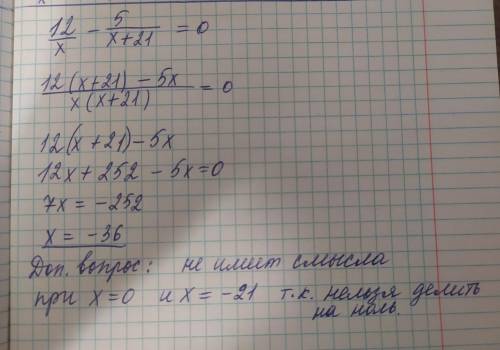 12/x - 5/x+21 = 0
12(x+21) - 5x / x(x+21) = 0
12(x+21) - 5x
12x + 252 - 5x = 0
7x = -252
x = -36
Доп. вопрос: не имеет смысла
при x=0 и x = -21 т.к. нельзя делить
на ноль.